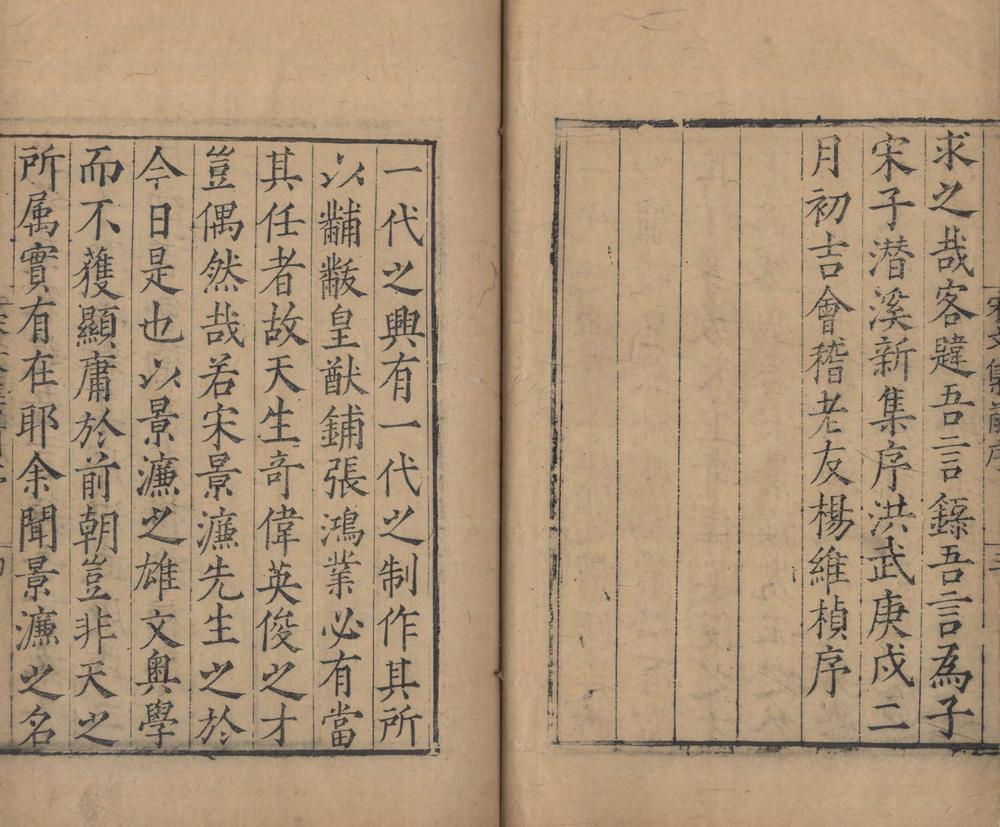 求之哉客韙吾言錄吾言為子
宋子潜溪新集序洪武庚戌二
月初吉會稽老友楊維楨序
一代之興有一代之制作其所
以黼黻皇猷鋪張鴻業必有當
其任者故天生奇偉英俊之才
豈偶然哉若宋景濂先生之於
今日是也以景濂之雄文奥學
而不獲顯庸於前朝豈非天之
所属實有在耶余聞景濂之名